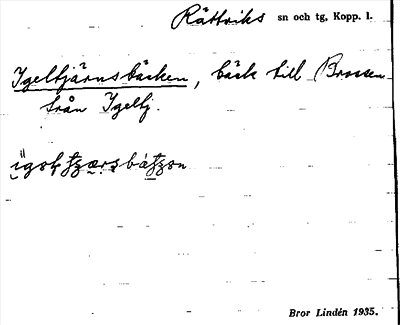 Rättviks sn och tg, Kopp. l.
Igeltjärnsbäcken, bäck till Brossen
från Igeltj.
Bror Lindén 1935.